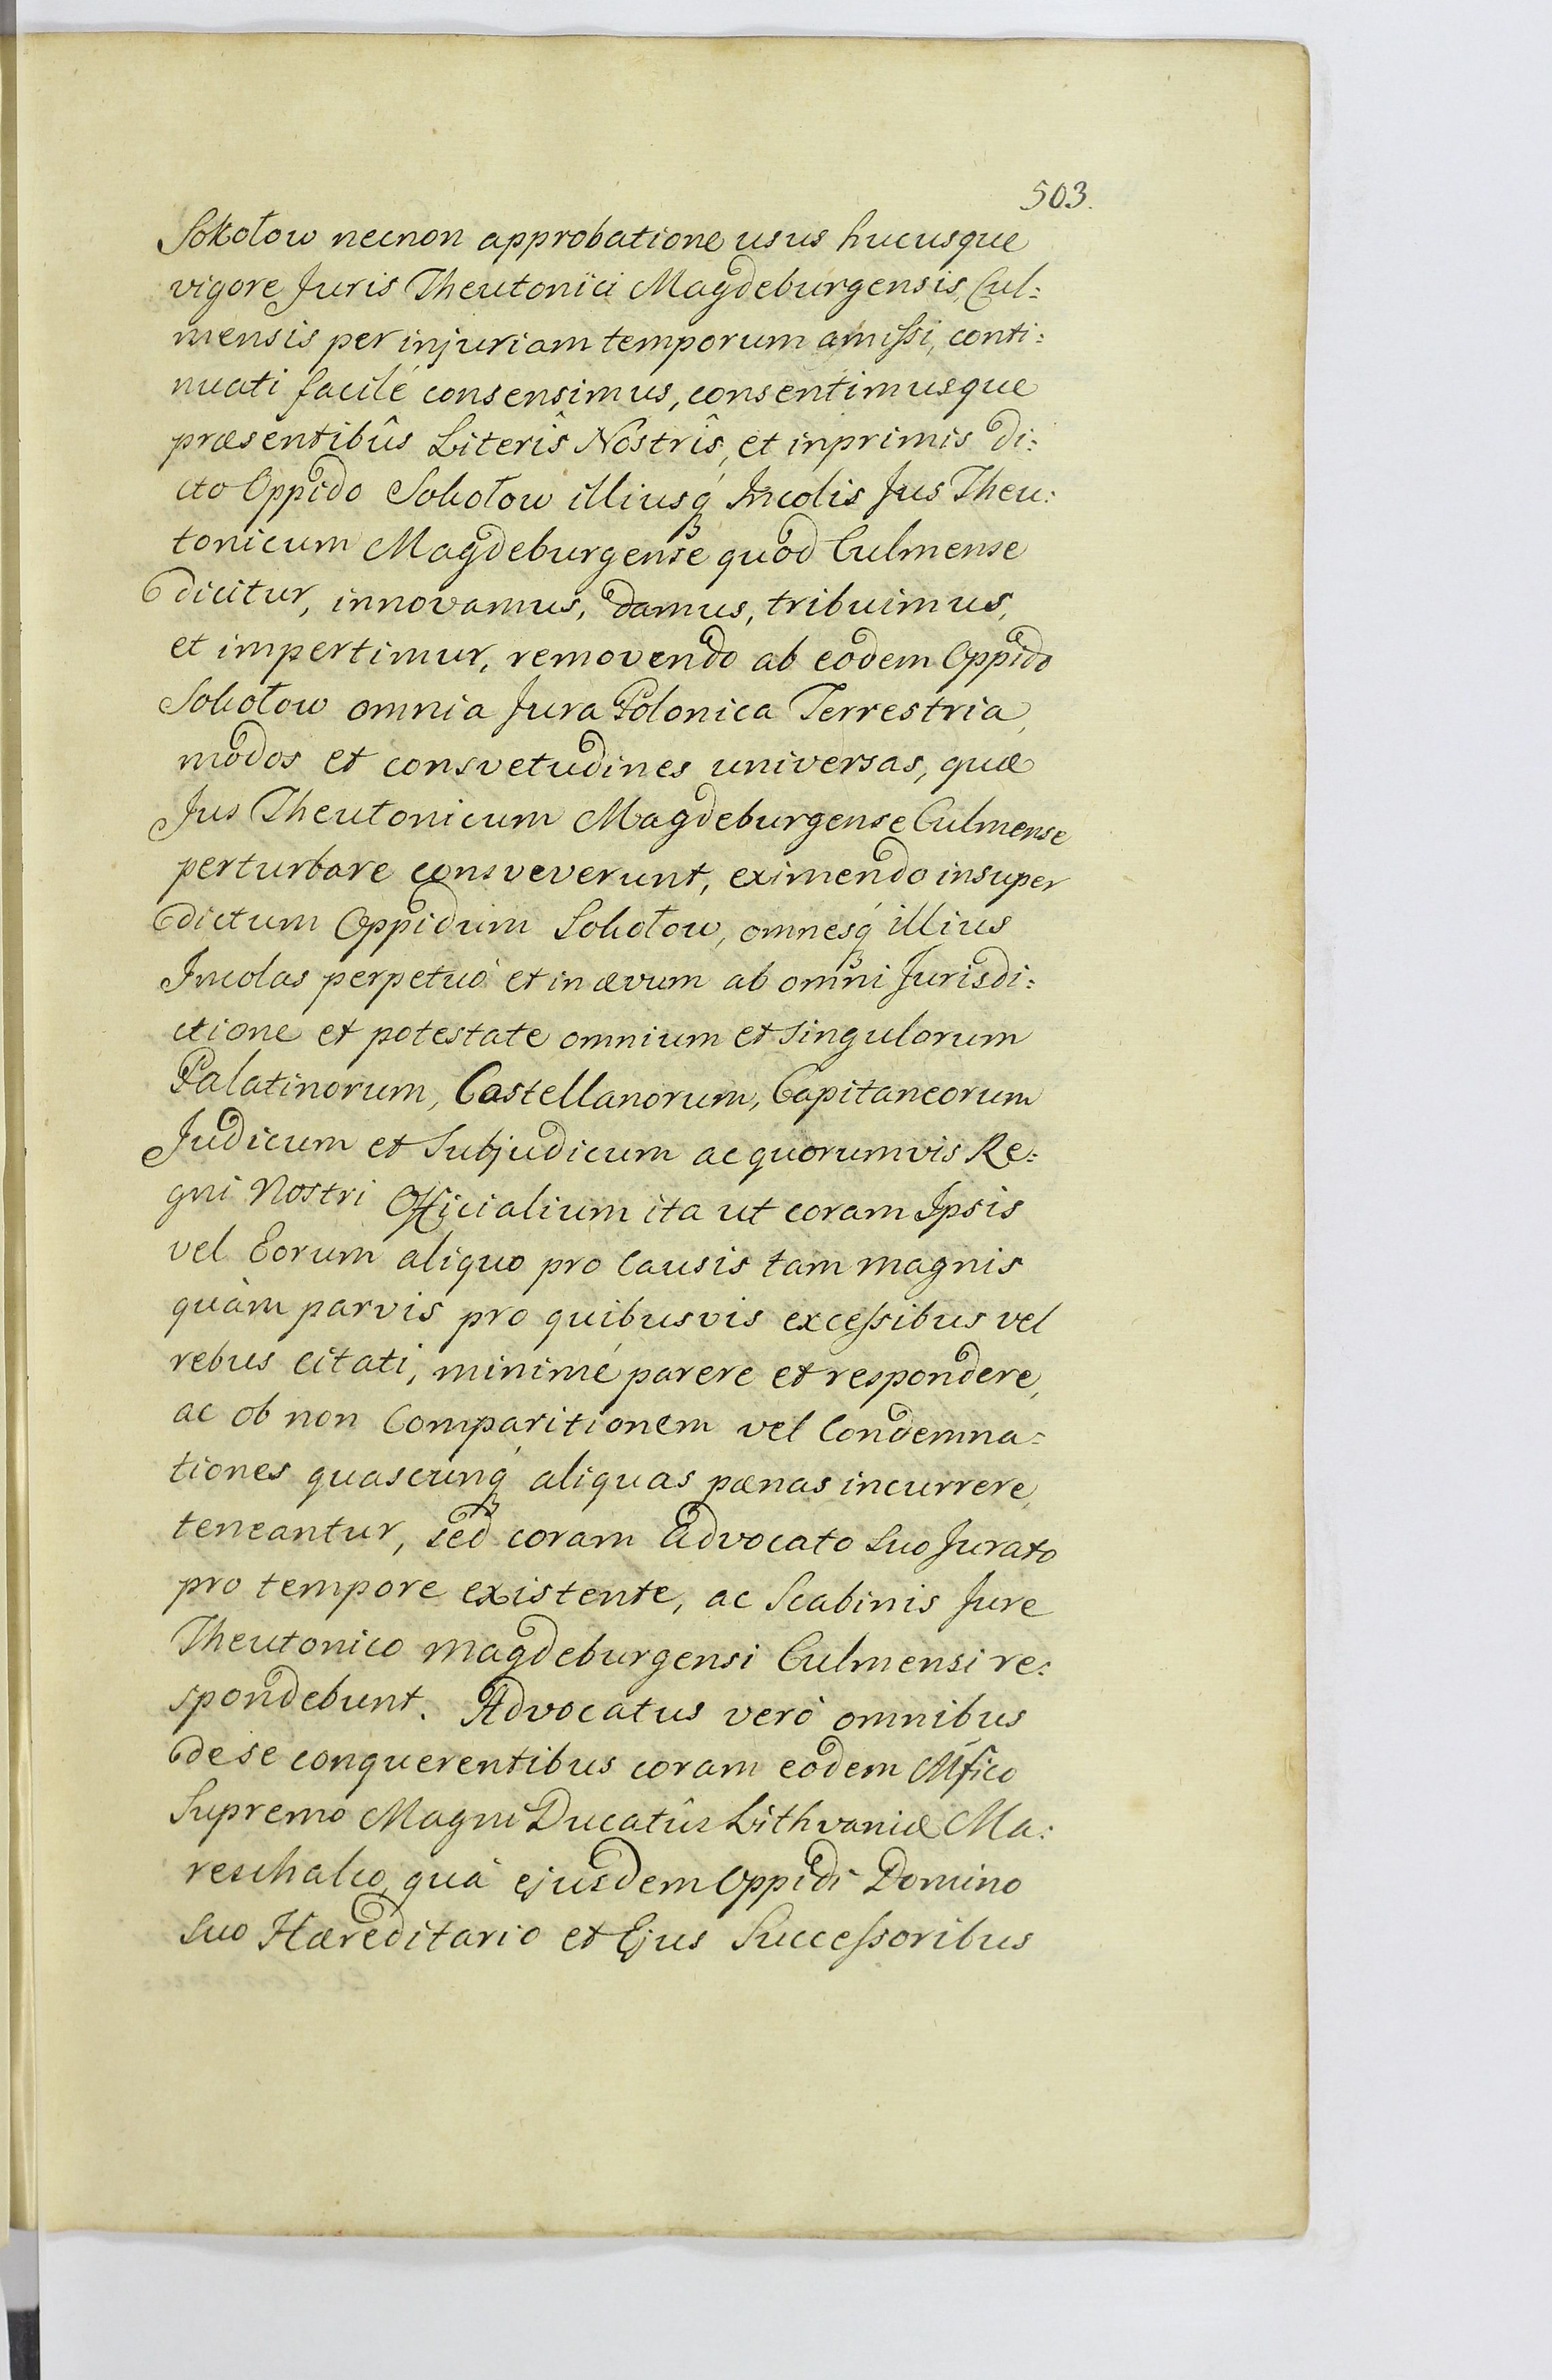 503.
Sokołow necnon approbatione usus hucusque
vigore Juris Theutonici Magdeburgensis, Cul:
mensis per injuriam temporum amiſsi, conti:
nuati facilé consensimus, consentimusque
præsentibûs Literîs Nostrîs, et inprimis di:
cto Oppido Sokołow illiusq́ Incolis Jus Theu:
tonicum Magdeburgense quod Culmense
dicitur, innovamus, damus, tribuimus,
et impertimur, removendo ab eodem Oppido
Sokołow omnia Jura Polonica Terrestria,
modos et consvetudines universas, quæ
Jus Theutonicum Magdeburgense Culmense
perturbare consveverunt, eximendo insuper
dictum Oppidum Sokołow, omnesq́ illius
Incolas perpetuò et in ævum ab omni Jurisdi:
ctione et potestate omnium et singulorum
Palatinorum, Castellanorum, Capitaneorum
Judicum et Subjudicum ac quorumvis Re:
gni Nostri Officialium ita ut coram Ipsis
vel Eorum aliquo pro Causis tam magnis
quàm parvis pro quibusvis exceſsibus vel
rebus citati, minimé parere et respondere,
ac ob non Comparitionem vel Condemna:
tiones quascunq́ aliquas pænas incurrere,
teneantur, sed coram Advocato suo Jurato
pro tempore existente, ac Scabinis Jure
Theutonico Magdeburgensi Culmensi re:
spondebunt. Advocatus verò omnibus
de se conquerentibus coram eodem Mfico
Supremo Magni Ducatûs Lithvaniæ Ma:
reschalco, quà ejusdem Oppidi Domino
suo Hæreditario et Ejus Succeſsoribus